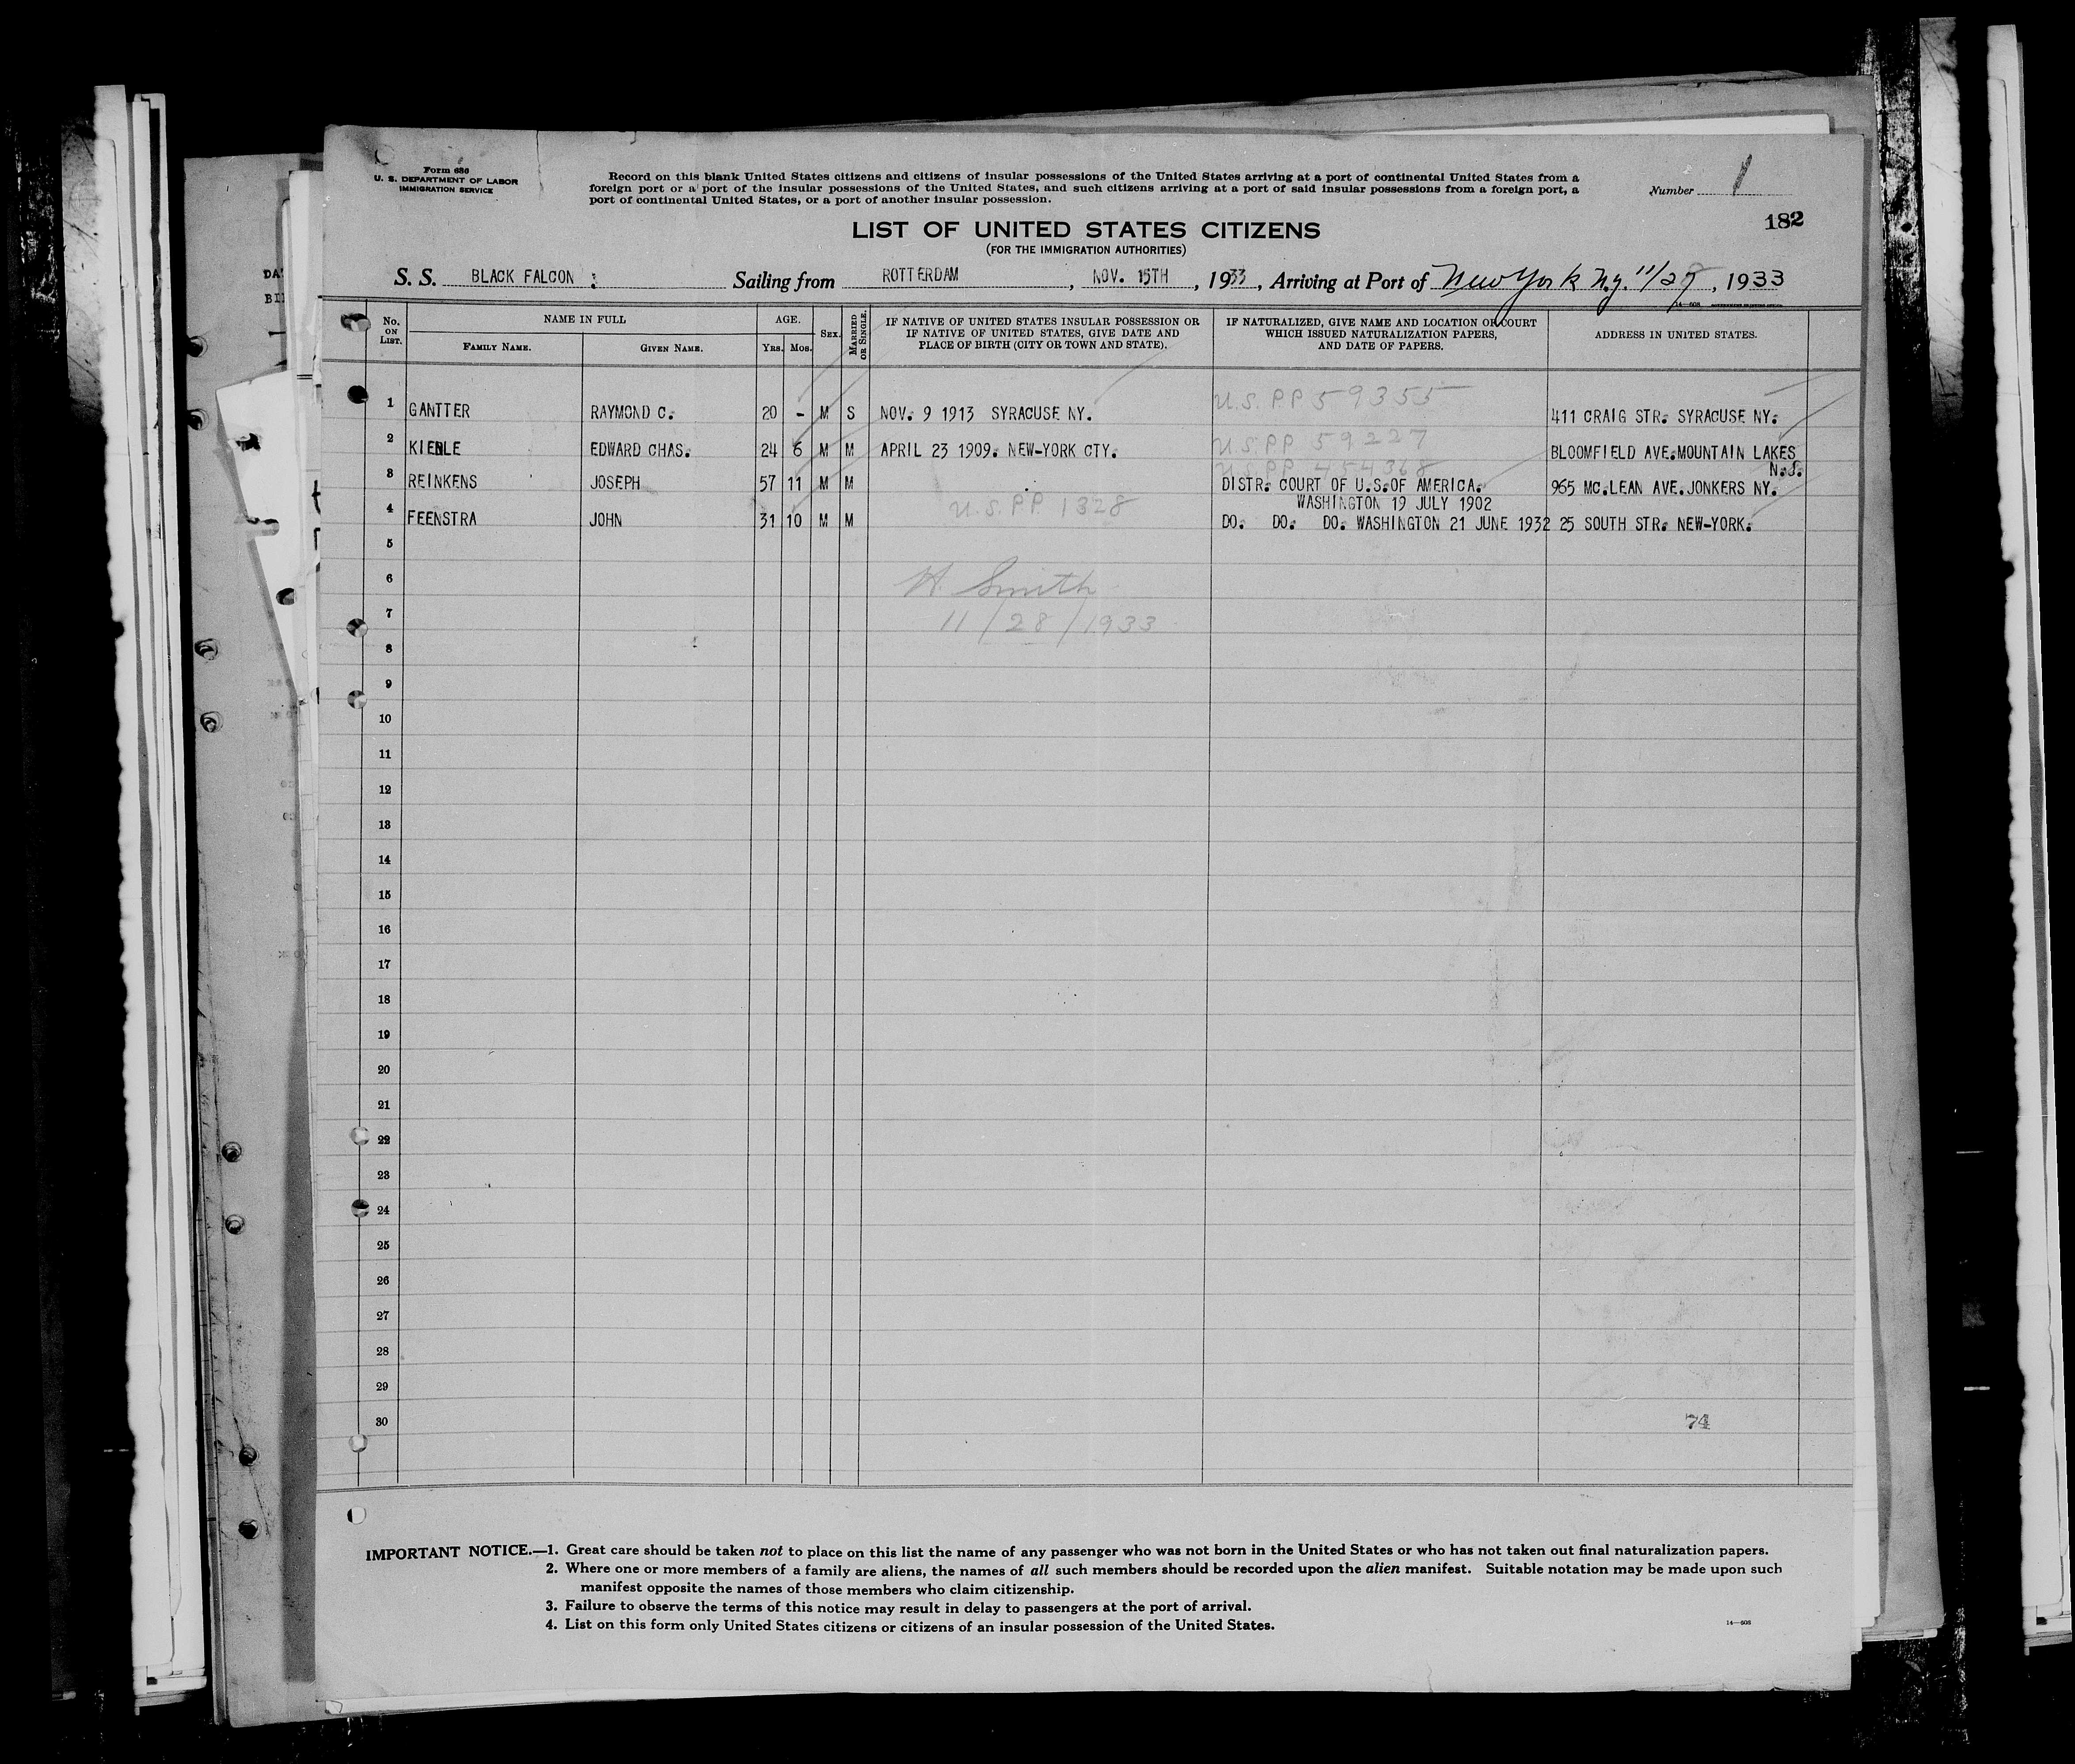 Form 630
U. S. DEPARTMENT OF LABOR
IMMIGRATION SERVICE
Record on this blank United States citizens and citizens of insular possessions of the United States arriving at a port of continental United States from a
foreign port or a port of the insular possessions of the United States, and such citizens arriving at a port of said insular possessions from a foreign port, a
port of continental United States, or a port of another insular possession.
Number 1
182
LIST OF UNITED STATES CITIZENS
(FOR THE IMMIGRATION AUTHORITIES)
S. S. BLACK FALCON : Sailing from ROTTERDAM, NOV. 15TH, 1933, Arriving at Port of New York N.y. 11/28, 1933
No. ON LIST. NAME IN FULL AGE. SEX. MARRIED OR SINGLE. IF NATIVE OF UNITED STATES INSULAR POSSESSION OR IF NATIVE OF UNITED STATES, GIVE DATE AND PLACE OF BIRTH (CITY OR TOWN AND STATE). IF NATURALIZED, GIVE NAME AND LOCATION OF COURT WHICH ISSUED NATURALIZATION PAPERS, AND DATE OF PAPERS. ADDRESS IN UNITED STATES.
FAMILY NAME. GIVEN NAME. Yrs. Mos.
U.S. P.P 59355
1 GANTTER RAYMOND C. 20 - M S NOV. 9 1913 SYRACUSE NY. 411 CRAIG STR. SYRACUSE NY.
U.S. PP 59227
2 KIENLE EDWARD CHAS. 24 6 M M APRIL 23 1909. NEW-YORK CTY. BLOOMFIELD AVE.MOUNTAIN LAKES
U.S. PP 454368 N.J.
3 REINKENS JOSEPH 57 11 M M DISTR. COURT OF U.S.OF AMERICA. 965 MC.LEAN AVE.JONKERS NY.
U.S. P.P. 1328 WASHINGTON 19 JULY 1902
4 FEENSTRA JOHN 31 10 M M DO. DO. DO. WASHINGTON 21 JUNE 1932 25 SOUTH STR. NEW-YORK.
5
6
H. Smith
7
11/28/1933
8
9
10
11
12
13
14
15
16
17
18
19
20
21
22
23
24
25
26
27
28
29
30
74
IMPORTANT NOTICE.—1. Great care should be taken not to place on this list the name of any passenger who was not born in the United States or who has not taken out final naturalization papers.
2. Where one or more members of a family are aliens, the names of all such members should be recorded upon the alien manifest. Suitable notation may be made upon such
manifest opposite the names of those members who claim citizenship.
3. Failure to observe the terms of this notice may result in delay to passengers at the port of arrival.
4. List on this form only United States citizens or citizens of an insular possession of the United States.